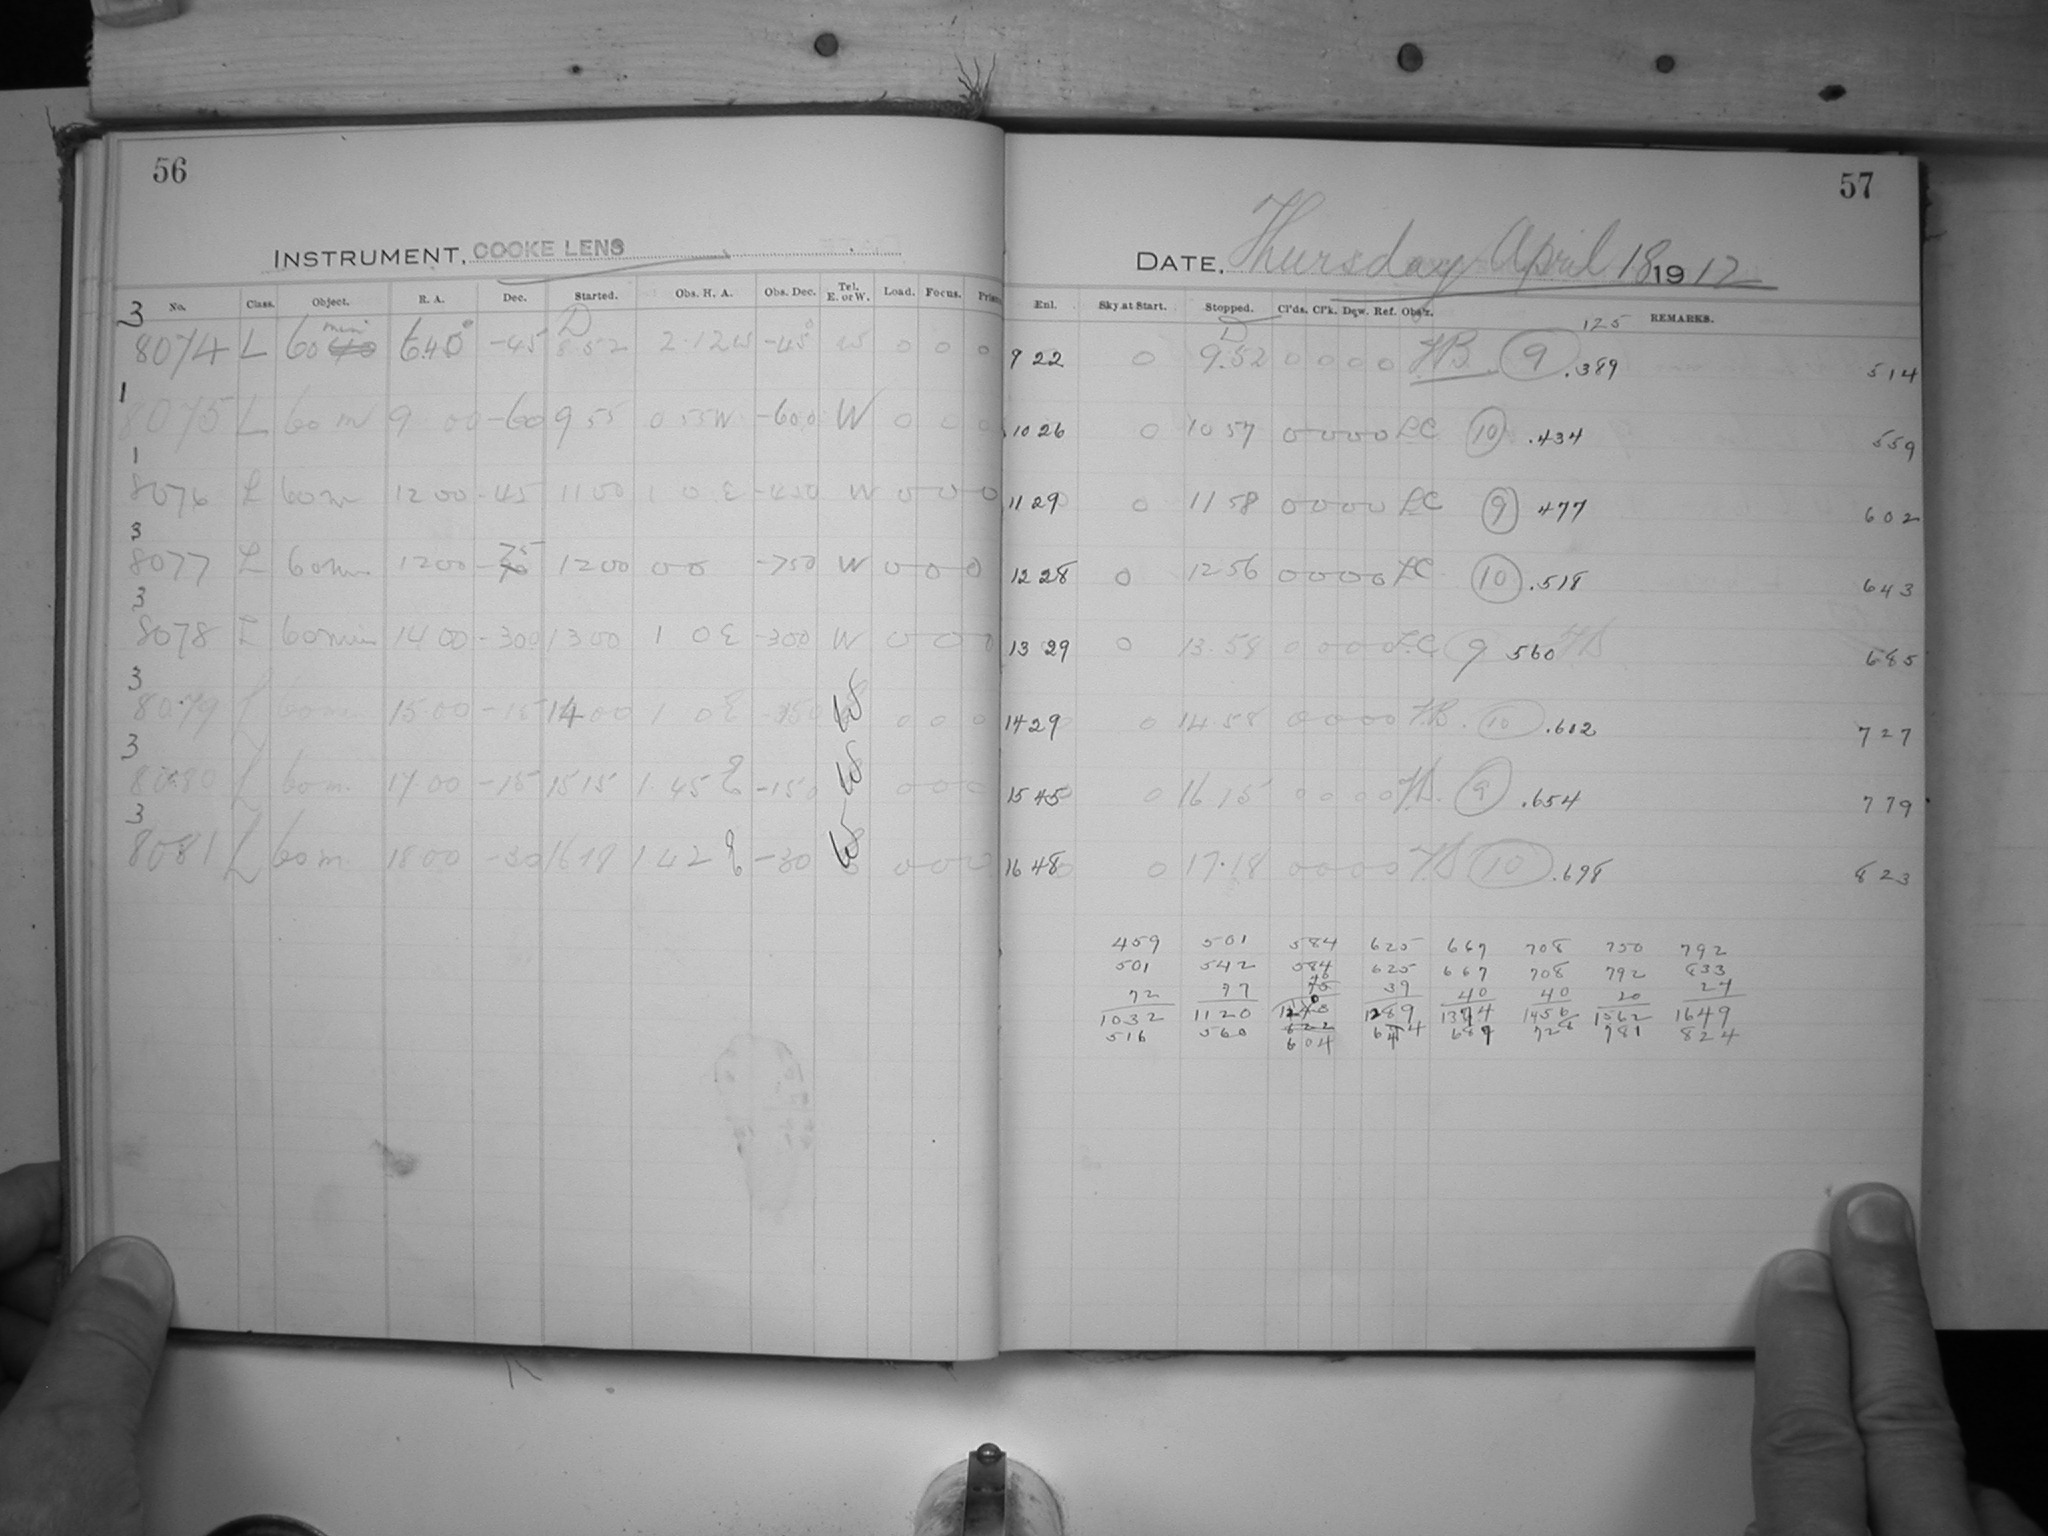 56
INSTRUMENT, COOKE LENS
No. Class. Object. R. A. Dec. Started. Obs. H. A. Obs. Dec. Tel. E. or W. Load. Focus. Prism
3
8074 L 60 min 6.40 -45 D 8 52 2.12 W -45° W 0 0 0
1
8075 L 60 m 9 00 -60 9 55 0 55 W -60 0 W 0 0 0
1
8076 L 60m 12 00 -45 11 00 1 0 E -45 0 W 0 0 0
3
8077 L 60min 12 00 -75 12 00 0 0 -75 0 W 0 0 0
3
8078 L 60min 14 00 -30 0 13 00 1 0 E -30 0 W 0 0 0
3
8079 L 60m 15.00 -15 14 00 1 0 E -15 0 W 0 0 0
3
8080 L 60m. 17 00 -15 15 15 1.45 E -15 0 W 0 0 0
3
8081 L 60m 18 00 -30 16 19 1 42 E -30 W 0 0 0
57
DATE, Thursday April 18 1912
Enl. Sky at Start. Stopped. Cl'ds. Cl'k. Dew. Ref. Obs'r. REMARKS.
125
9 22 0 D 9.52 0 0 0 0 9 .389 514
10 26 0 10 57 0 0 0 0 LC 10 .434 559
11 29 0 11 58 0 0 0 0 LC 9 477 602
12 28 0 12 56 0 0 0 0 LC 10 .518 643
13 29 0 13.58 0 0 0 0 LC 9 560 685
14 29 0 14 58 0 0 0 0 10 .602 727
15 45 0 16 15 0 0 0 0 9 .654 779
16 48 0 17.18 0 0 0 0 10 .698 823
459 501 584 625 667 708 750 792
501 542 584 625 667 708 792 833
72 77 39 40 40 20 24
1032 1120 1289 1374 1456 1562 1649
516 560 644 687 728 781 824
604